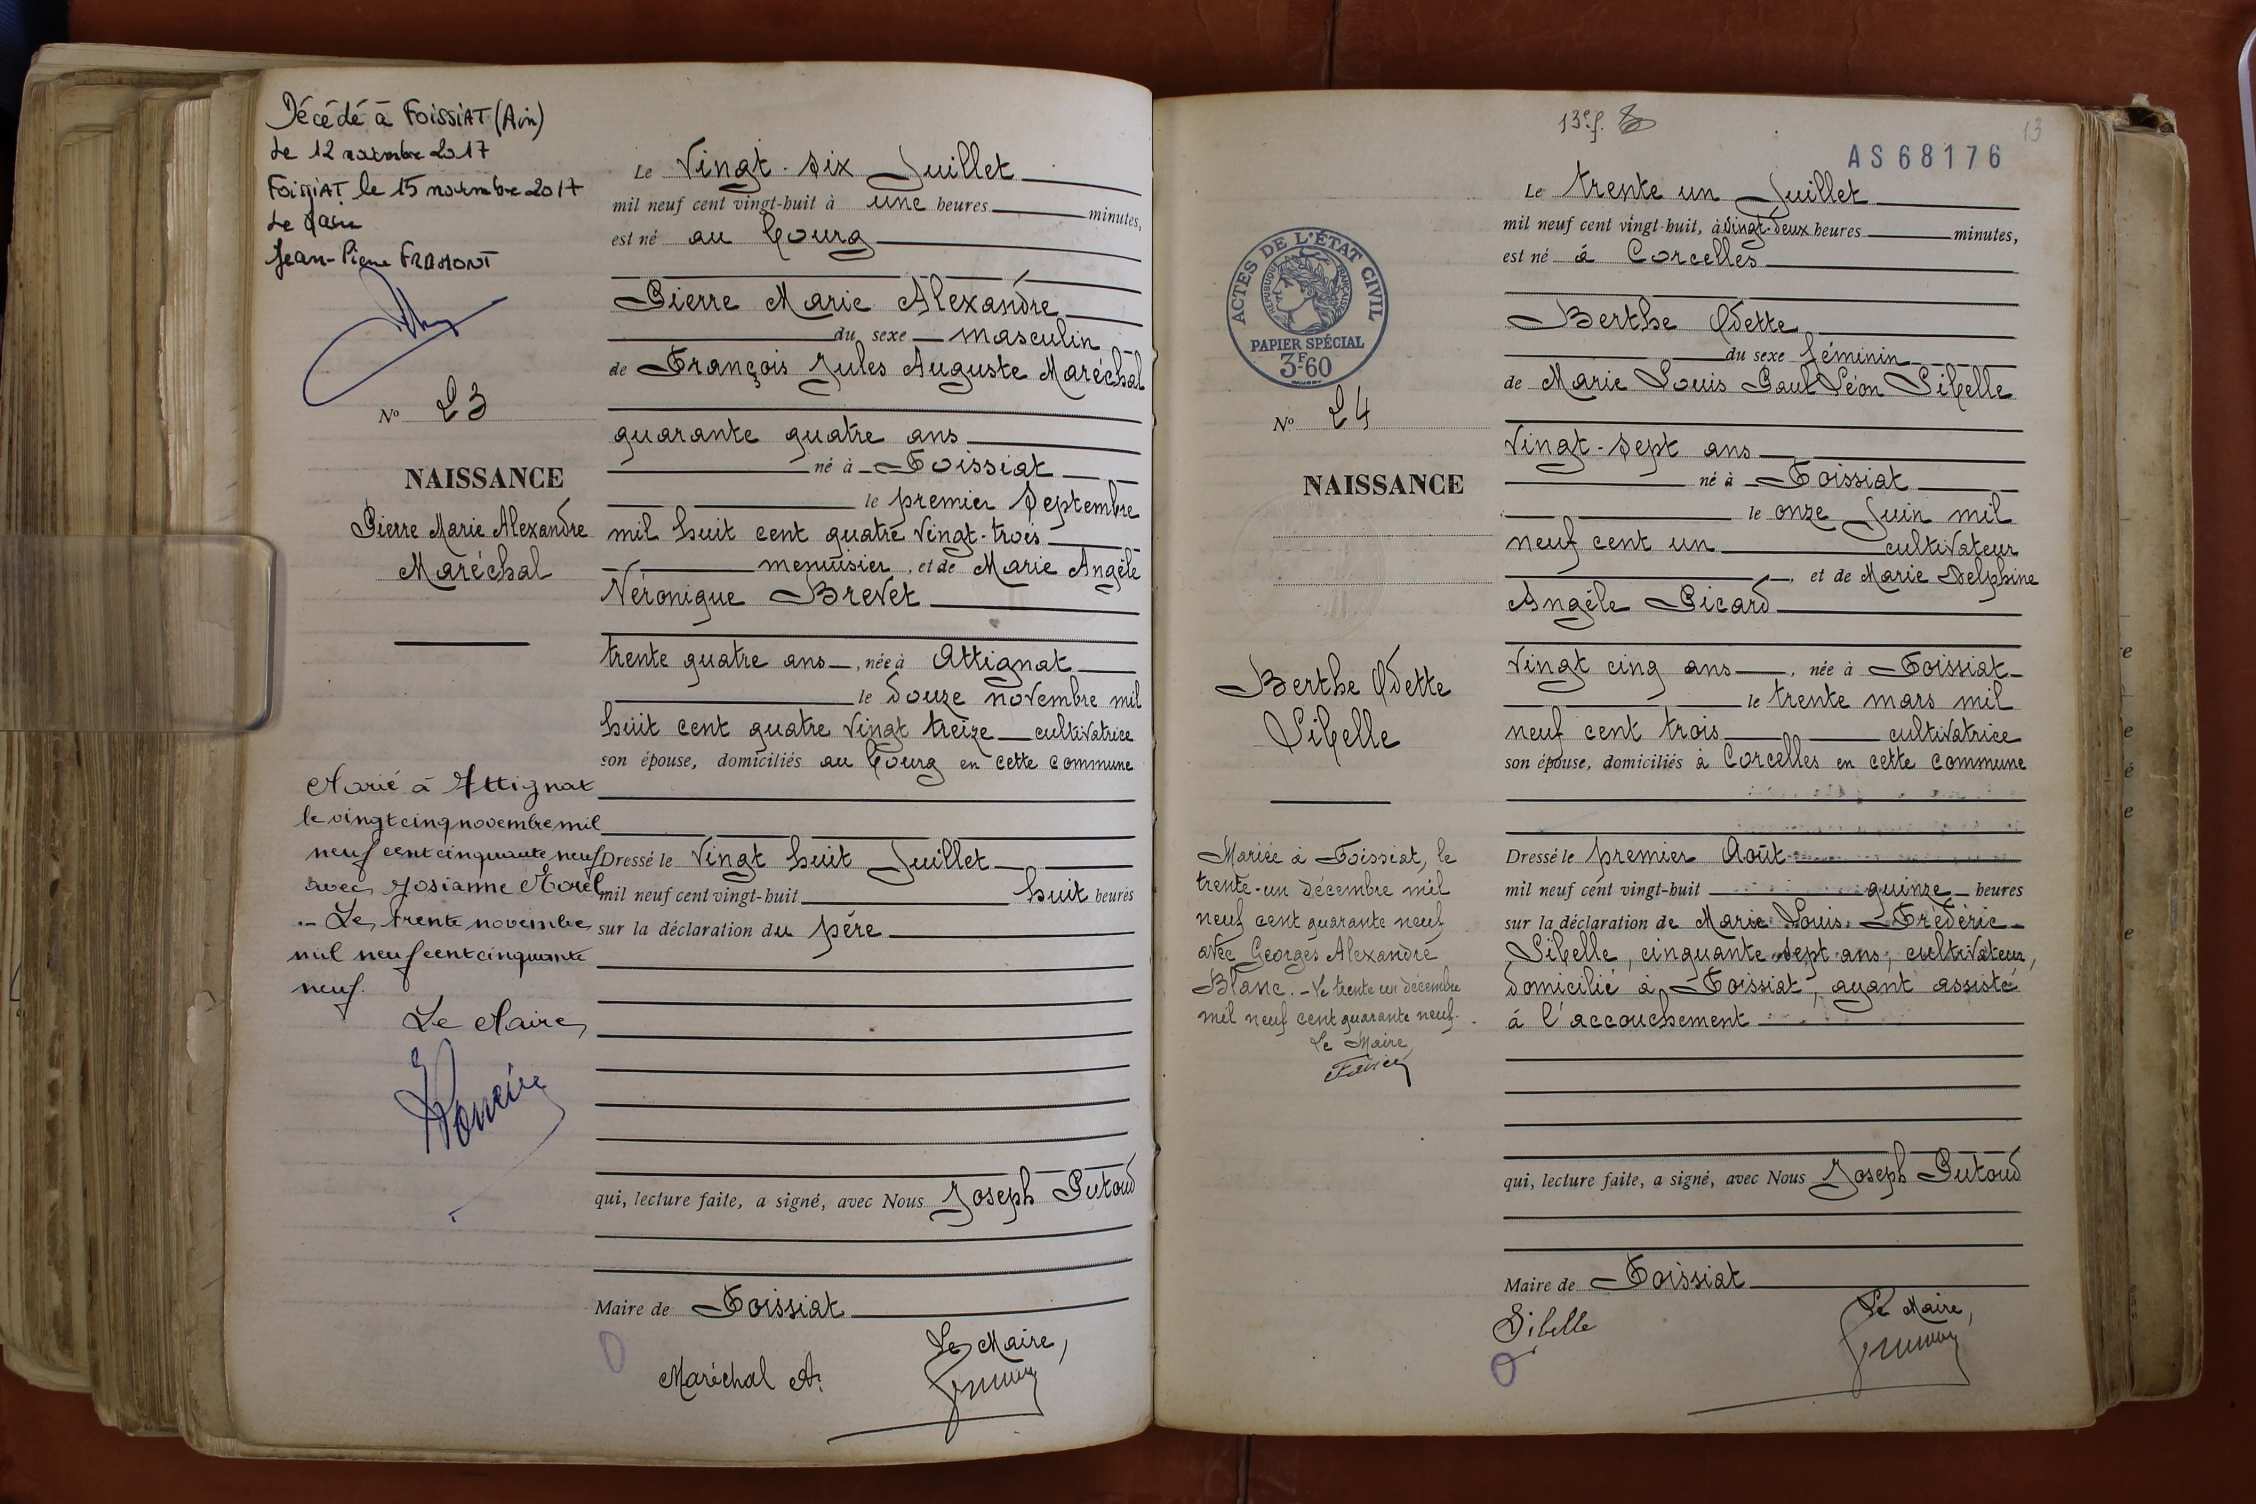 Décédé à FOISSIAT (Ain)
Le 12 novembre 2017
FOISSIAT le 15 novembre 2017
Le Maire
Jean-Pierre FROMONT
No 23
NAISSANCE
Pierre Marie Alexandre
Maréchal
Marié à Attignat
le vingt cinq novembre mil
neuf cent cinquante neuf
avec Josianne Morel
- Le trente novembre
mil neuf cent cinquante
neuf.
Le Maire,
Le Vingt-six Juillet
mil neuf cent vingt-huit à une heures minutes,
est né au bourg
Pierre Marie Alexandre
du sexe masculin
de François Jules Auguste Maréchal
quarante quatre ans
né à Foissiat
le premier Septembre
mil huit cent quatre Vingt-trois
menuisier, et de Marie Angèle
Véronique Brevet
trente quatre ans, née à Attignat
le douze novembre mil
huit cent quatre Vingt treize cultivatrice
son épouse, domiciliés au bourg en cette commune
Dressé le Vingt huit Juillet
mil neuf cent vingt-huit huit heures
sur la déclaration du père
qui, lecture faite, a signé, avec Nous Joseph Putoud
Maire de Foissiat
Le Maire,
Maréchal A.
13e f.
13
AS68176
ACTES DE L'ÉTAT CIVIL
RÉPUBLIQUE FRANÇAISE
PAPIER SPÉCIAL
3F60
No 24
NAISSANCE
Berthe Odette
Sibelle
Mariée à Foissiat, le
trente-un décembre mil
neuf cent quarante neuf
avec Georges Alexandre
Blanc. - Le trente un décembre
mil neuf cent quarante neuf.
Le Maire,
Le trente un Juillet
mil neuf cent vingt-huit, à Vingt-deux heures minutes,
est né à Corcelles
Berthe Odette
du sexe féminin
de Marie Louis Paul Léon Sibelle
Vingt-sept ans
né à Foissiat
le onze Juin mil
neuf cent un cultivateur
, et de Marie Delphine
Angèle Picard
Vingt cinq ans, née à Foissiat
le trente mars mil
neuf cent trois cultivatrice
son épouse, domiciliés à Corcelles en cette commune
Dressé le premier Août
mil neuf cent vingt-huit quinze heures
sur la déclaration de Marie Louis Frédéric
Sibelle, cinquante sept ans, cultivateur,
domicilié à Foissiat, ayant assisté
à l'accouchement
qui, lecture faite, a signé, avec Nous Joseph Putoud
Maire de Foissiat
Le Maire,
Sibelle